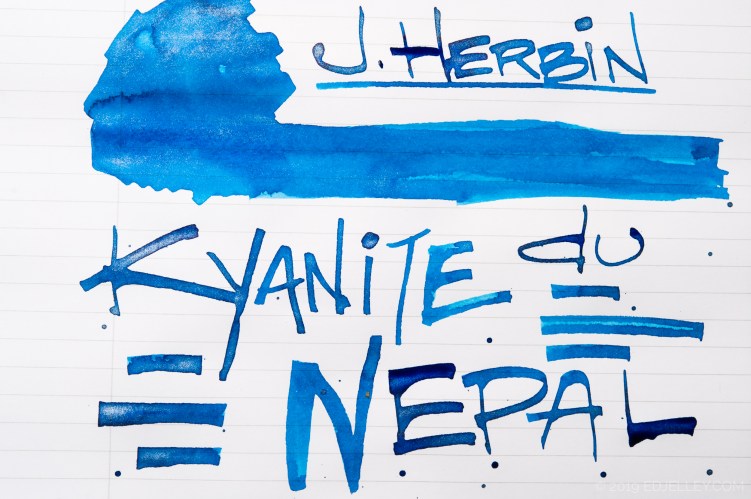 J. HERBiN
KYANiTE du
NEPAL